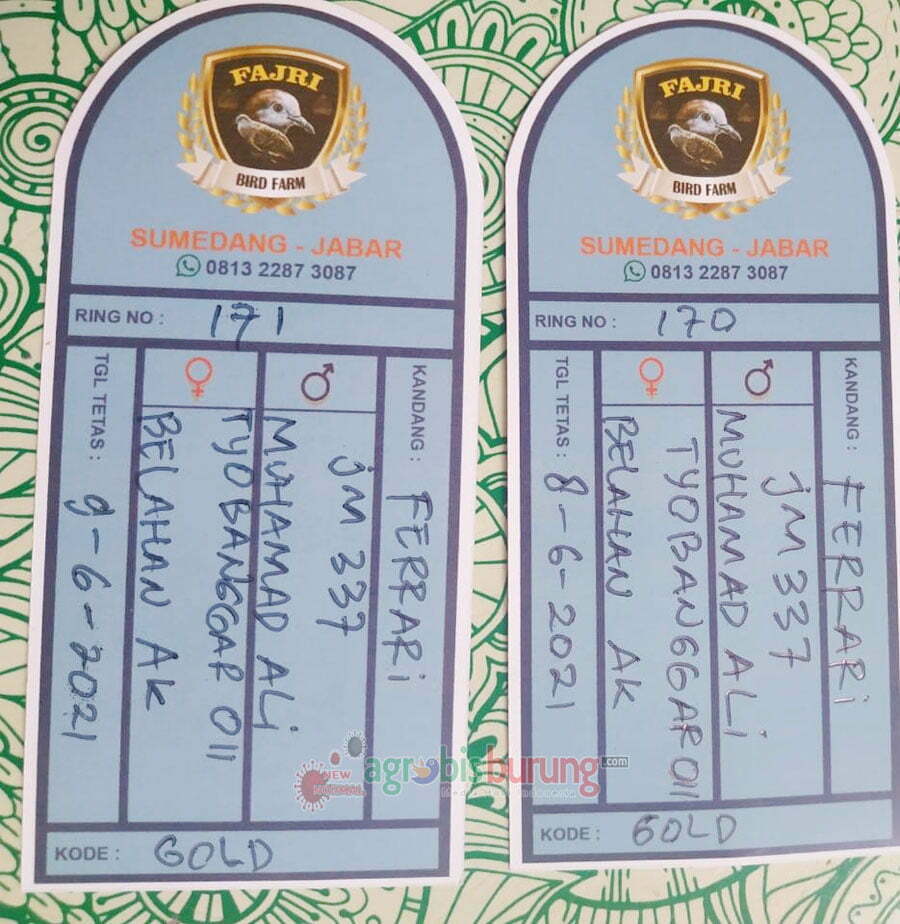 FAJRI
BIRD FARM
SUMEDANG - JABAR
0813 2287 3087
RING NO : 171
KANDANG : FERRARi
♂
JM 337
MUHAMAD ALi
♀
TYOBANGGAR 011
BELAHAN AK
TGL TETAS : 9-6-2021
KODE : GOLD
FAJRI
BIRD FARM
SUMEDANG - JABAR
0813 2287 3087
RING NO : 170
KANDANG : FERRARi
♂
JM 337
MUHAMAD ALi
♀
TYOBANGGAR 011
BELAHAN AK
TGL TETAS : 8-6-2021
KODE : GOLD
NEW
NORMAL
agrobisburung.com